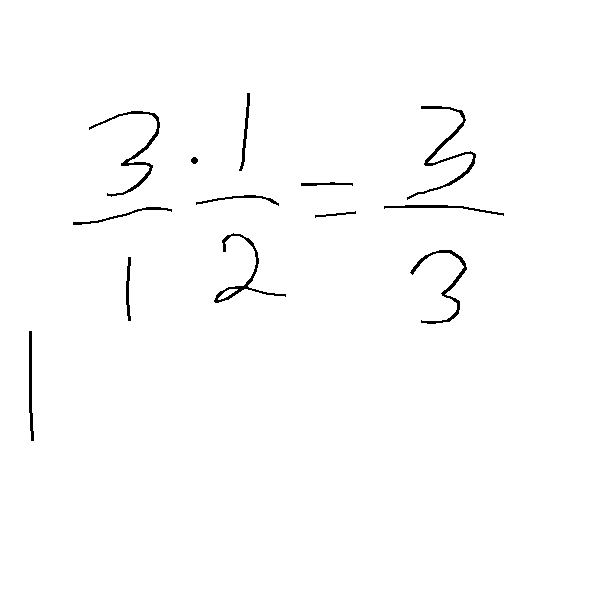 3/1 · 1/2 = 3/3
1